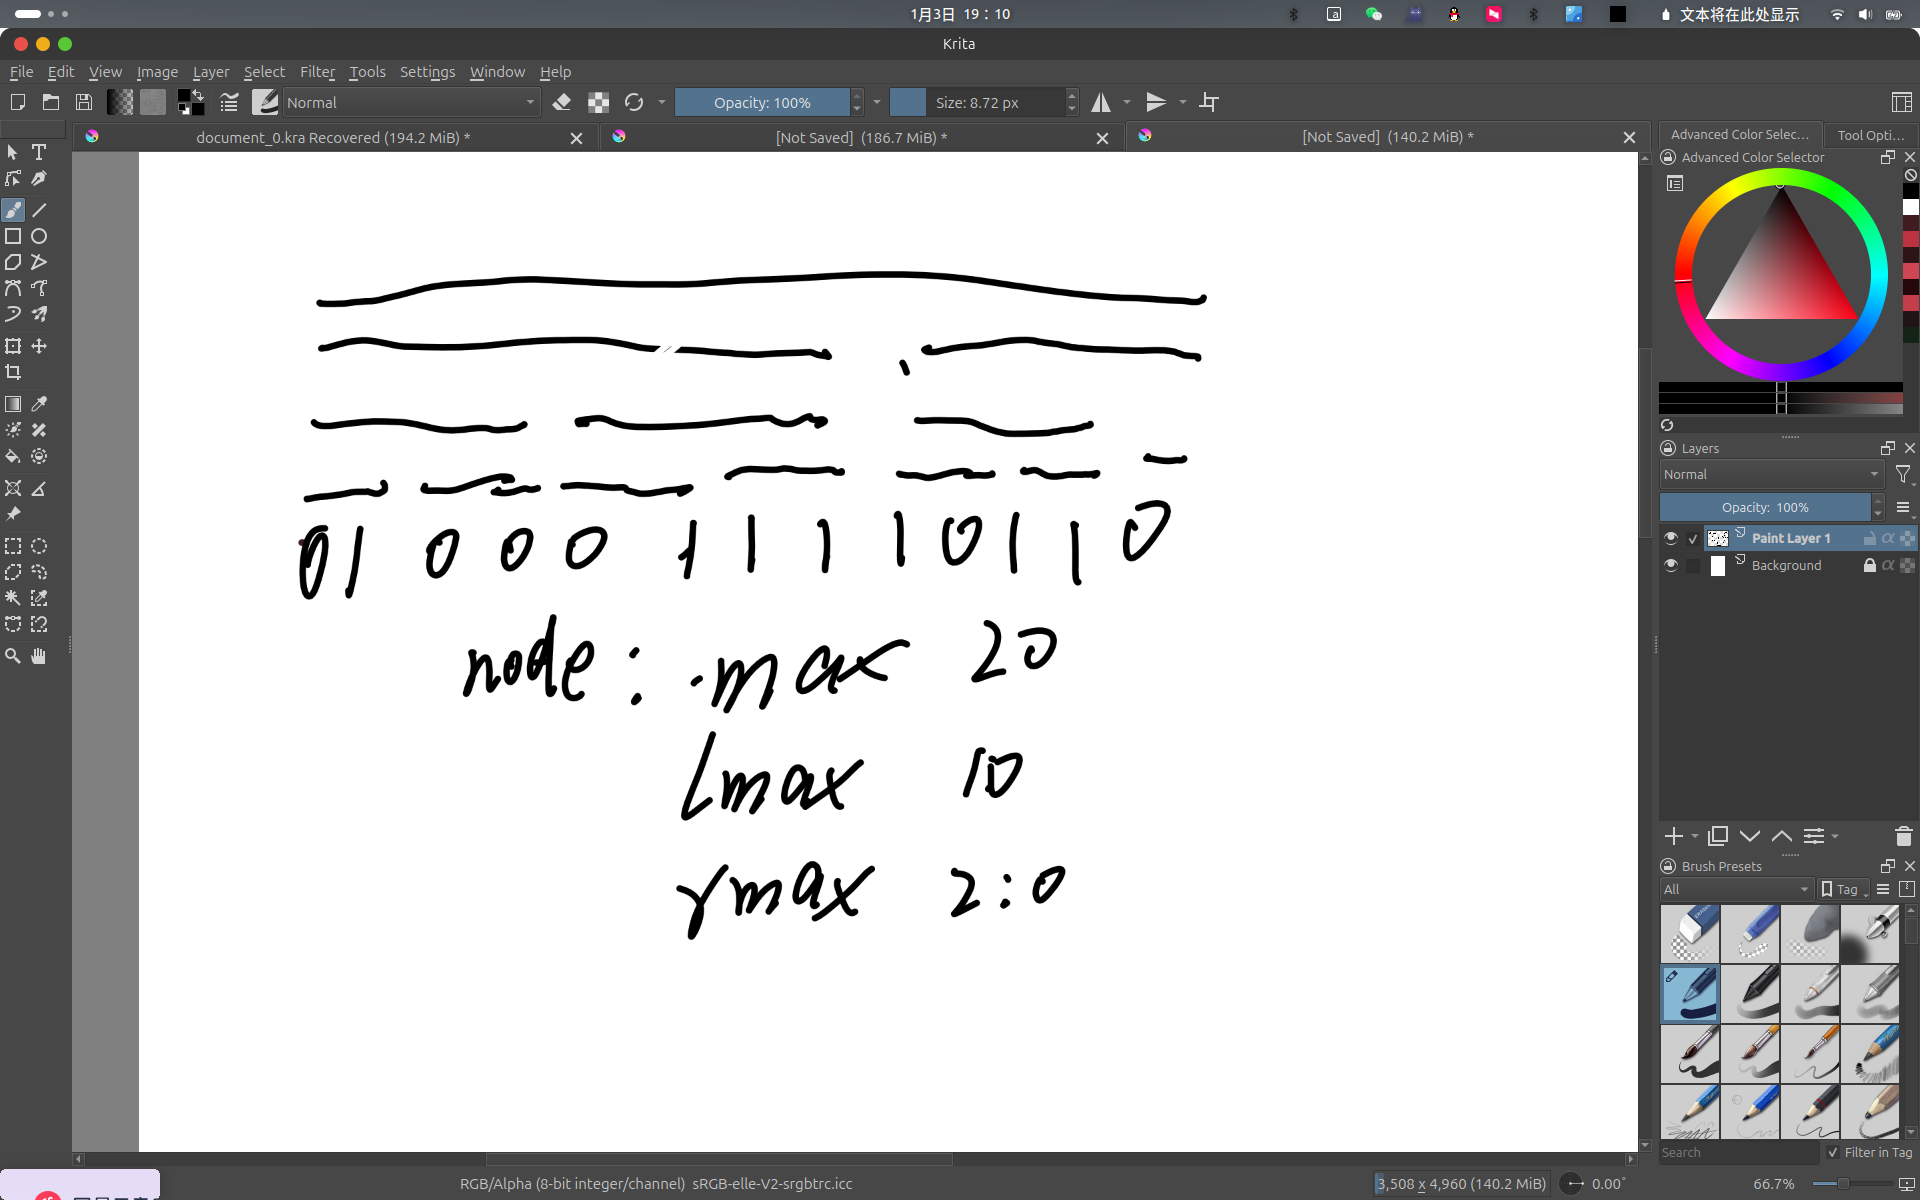 1月3日 19：10
文本将在此处显示
Krita
File Edit View Image Layer Select Filter Tools Settings Window Help
Normal
Opacity: 100%
Size: 8.72 px
document_0.kra Recovered (194.2 MiB) *
[Not Saved] (186.7 MiB) *
[Not Saved] (140.2 MiB) *
Advanced Color Selec...
Tool Opti...
Advanced Color Selector
0 1 0 0 0 1 1 1 1 0 1 1 0
node: max 20
lmax 10
rmax 2:0
Layers
Normal
Opacity: 100%
Paint Layer 1
Background
Brush Presets
All
Tag
Search
Filter in Tag
RGB/Alpha (8-bit integer/channel) sRGB-elle-V2-srgbtrc.icc
3,508 x 4,960 (140.2 MiB)
0.00°
66.7%